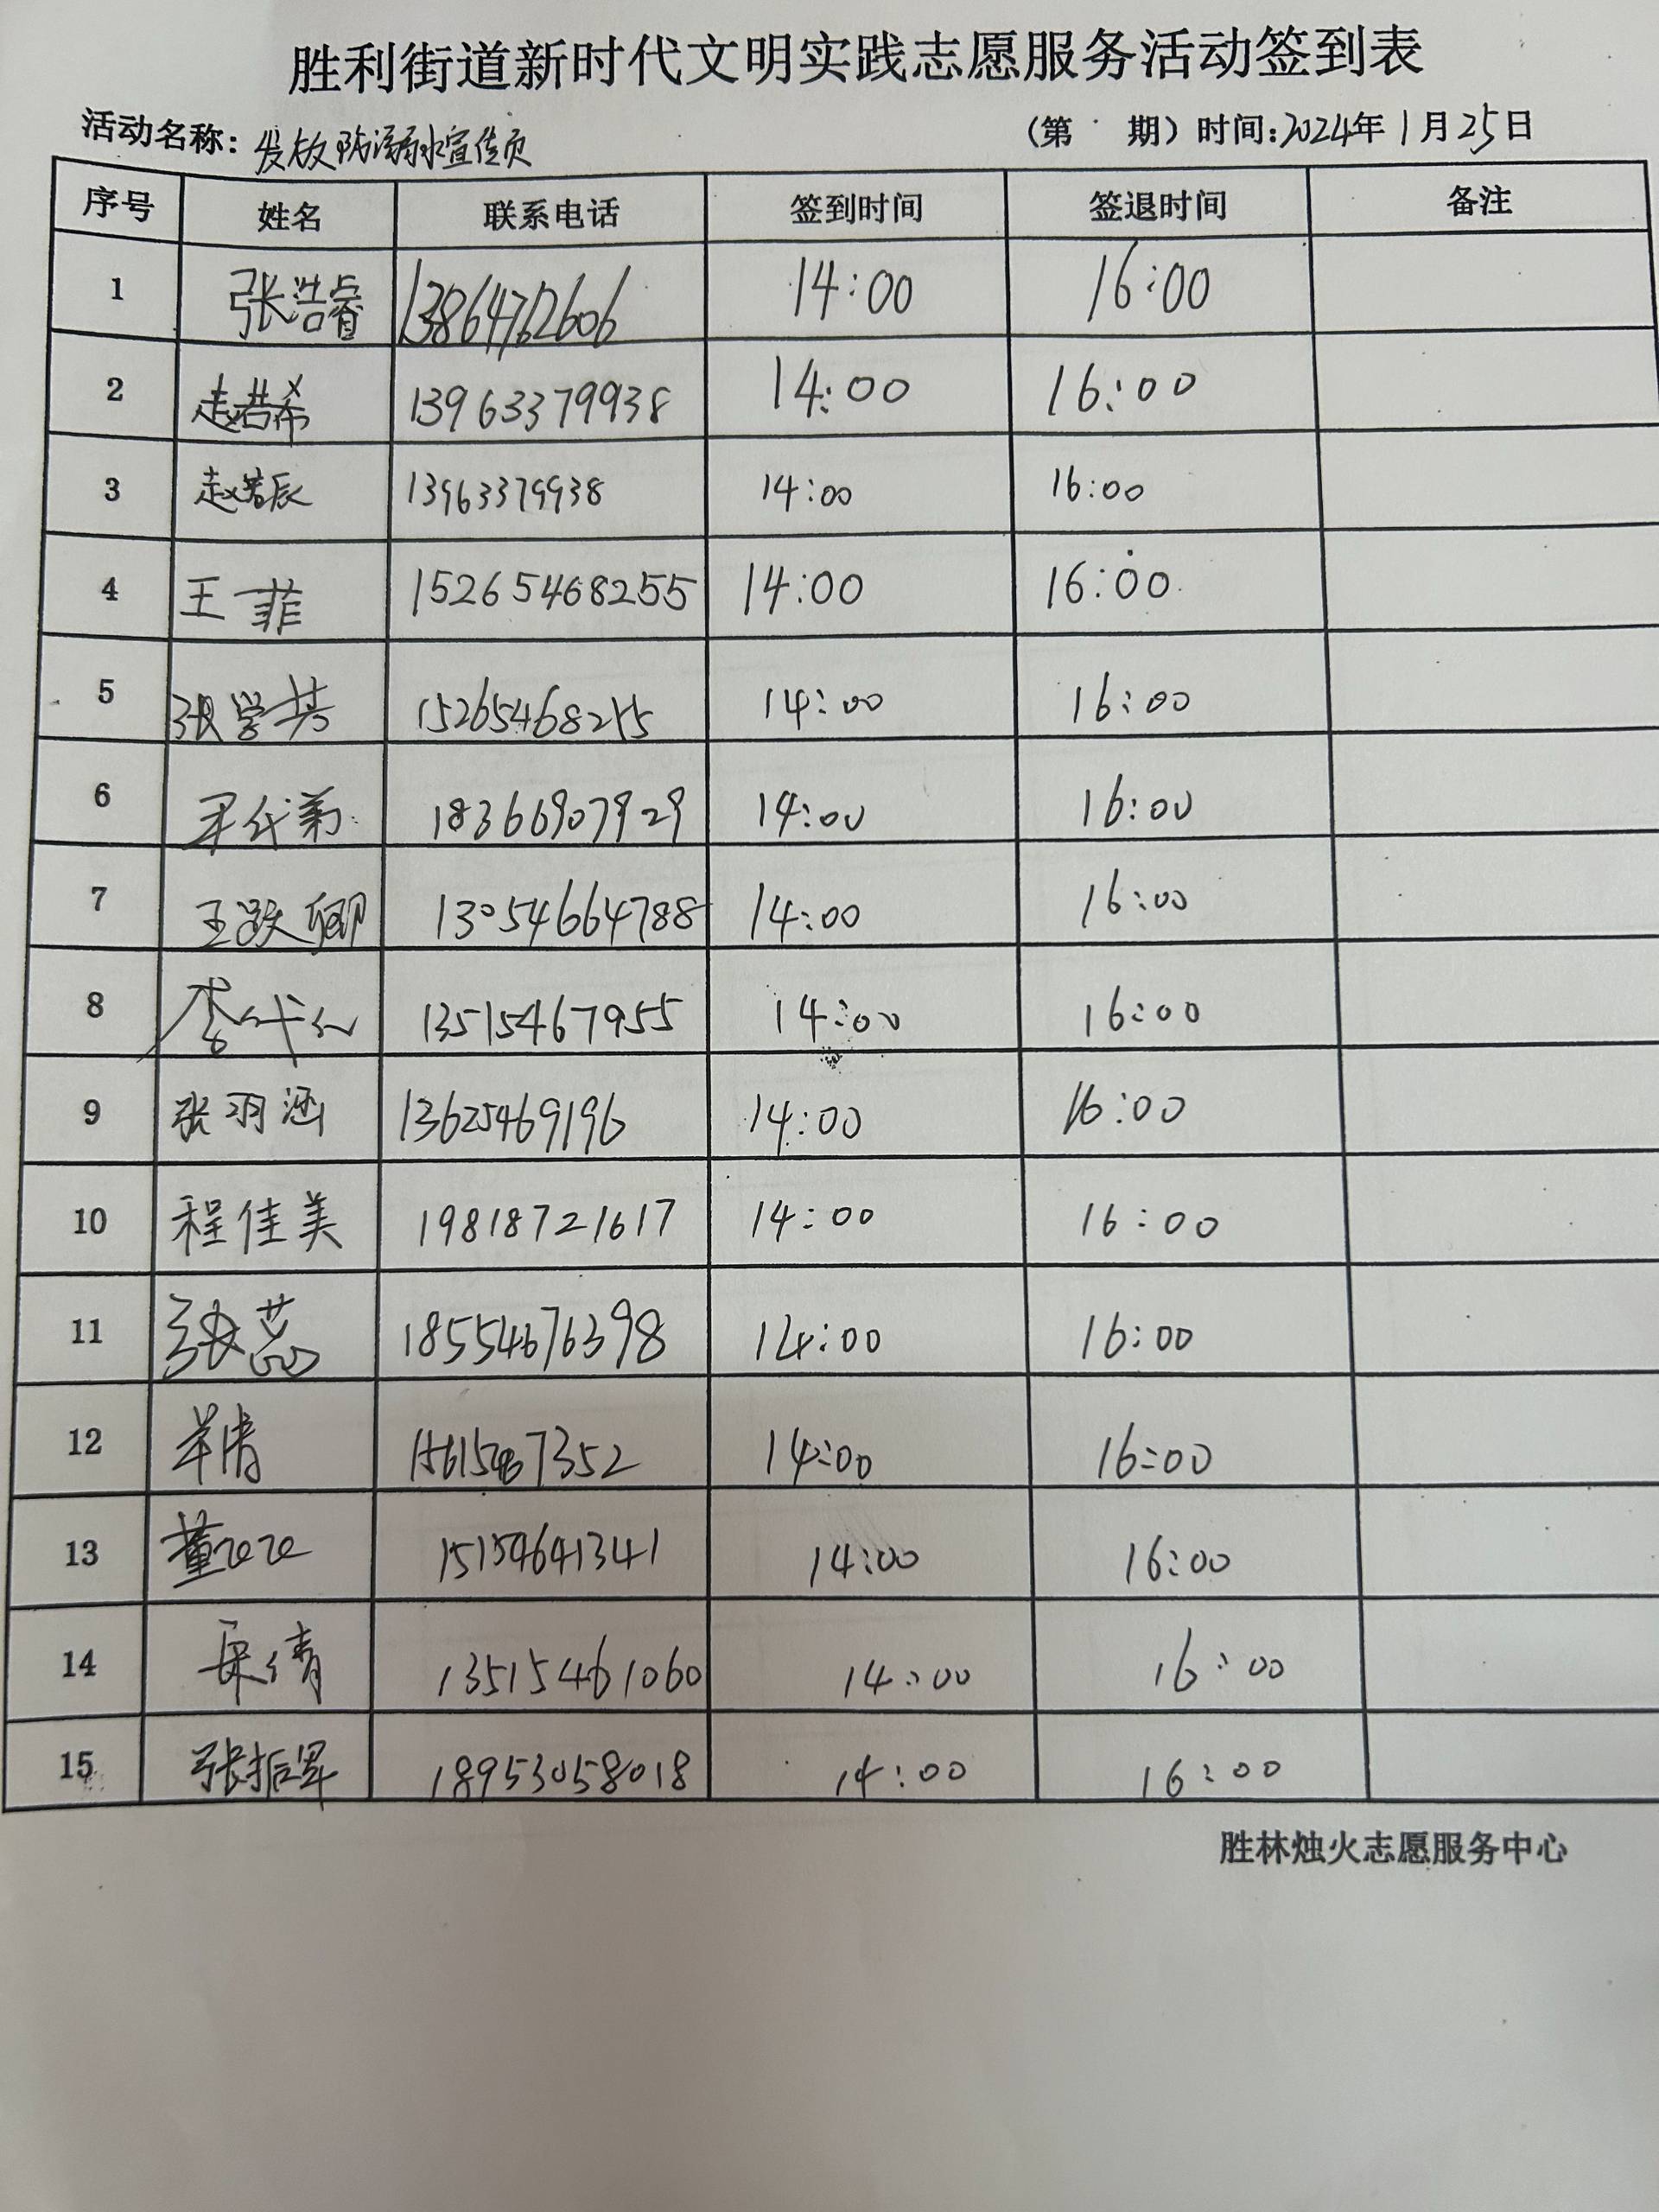 胜利街道新时代文明实践志愿服务活动签到表
活动名称: 发放防溺水宣传页 (第 期) 时间:2024年1月25日
序号 姓名 联系电话 签到时间 签退时间 备注
1 张浩睿 13864762606 14:00 16:00
2 赵若希 13963379938 14:00 16:00
3 赵若辰 13963379938 14:00 16:00
4 王菲 15265468255 14:00 16:00
5 张学芬 15265468255 14:00 16:00
6 18366907929 14:00 16:00
7 王跃卿 13054664788 14:00 16:00
8 13515467955 14:00 16:00
9 张羽涵 13625469196 14:00 16:00
10 程佳美 19818721617 14:00 16:00
11 张蕊 18554676398 14:00 16:00
12 14:00 16:00
13 董 15154641341 14:00 16:00
14 13515461060 14:00 16:00
15 张振军 18953058018 14:00 16:00
胜林烛火志愿服务中心